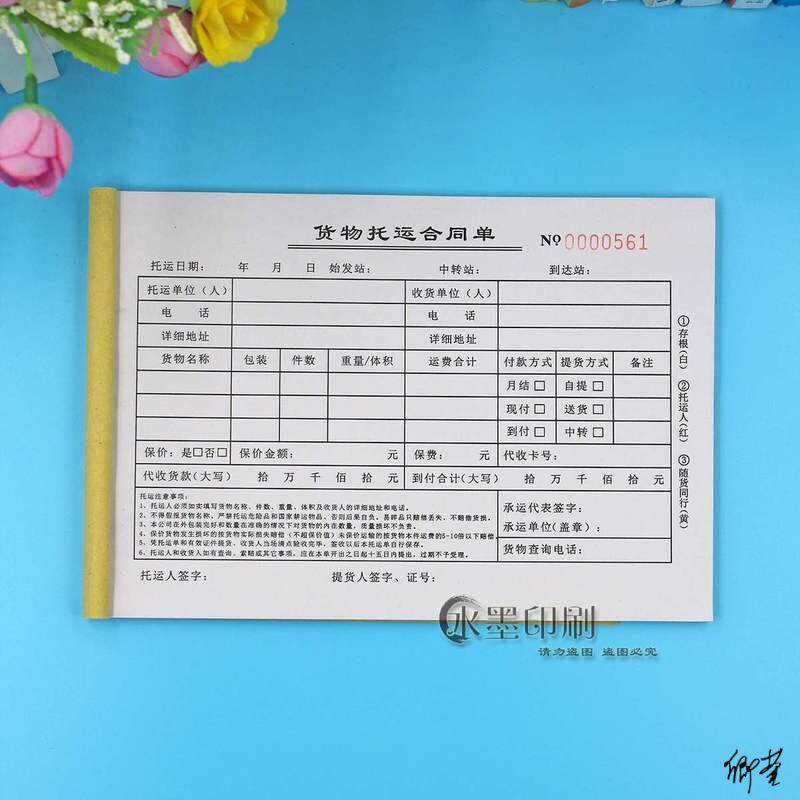 货物托运合同单 № 0000561
托运日期： 年 月 日 始发站： 中转站： 到达站：
托运单位（人） 收货单位（人）
电 话 电 话
详细地址 详细地址
货物名称 包装 件数 重量/体积 运费合计 付款方式 提货方式 备注
月结□ 自提□
现付□ 送货□
到付□ 中转□
保价：是□否□ 保价金额： 元 保费： 元 代收卡号：
代收货款（大写） 拾 万 千 佰 拾 元 到付合计（大写） 拾 万 千 佰 拾 元
托运注意事项：
1、托运人必须如实填写货物名称、件数、重量、体积及收货人的详细地址和电话。
2、不得假报货物名称，严禁托运危险品和国家禁运物品，否则后果自负。易碎品只赔偿丢失，不赔偿货损。
3、本公司在外包装完好和数量在准确的情况下对货物的内在数量，质量损坏不负责。
4、保价货物发生损坏的按货物实际损失赔偿（不超保价值）未保价运输的按货物本件运费的5-10倍以下赔偿
5、凭托运单和有效证件提货，收货人当场清点验收完毕，签收以后本托运单自行保存。
6、托运人和收货人如有查询、索赔或其它事项，应在本单开出之日起十五日内提出，过期不予受理。
承运代表签字：
承运单位（盖章）：
货物查询电话：
托运人签字： 提货人签字、证号：
①存根（白） ②托运人（红） ③随货同行（黄）
水墨印刷
请勿盗图 盗图必究